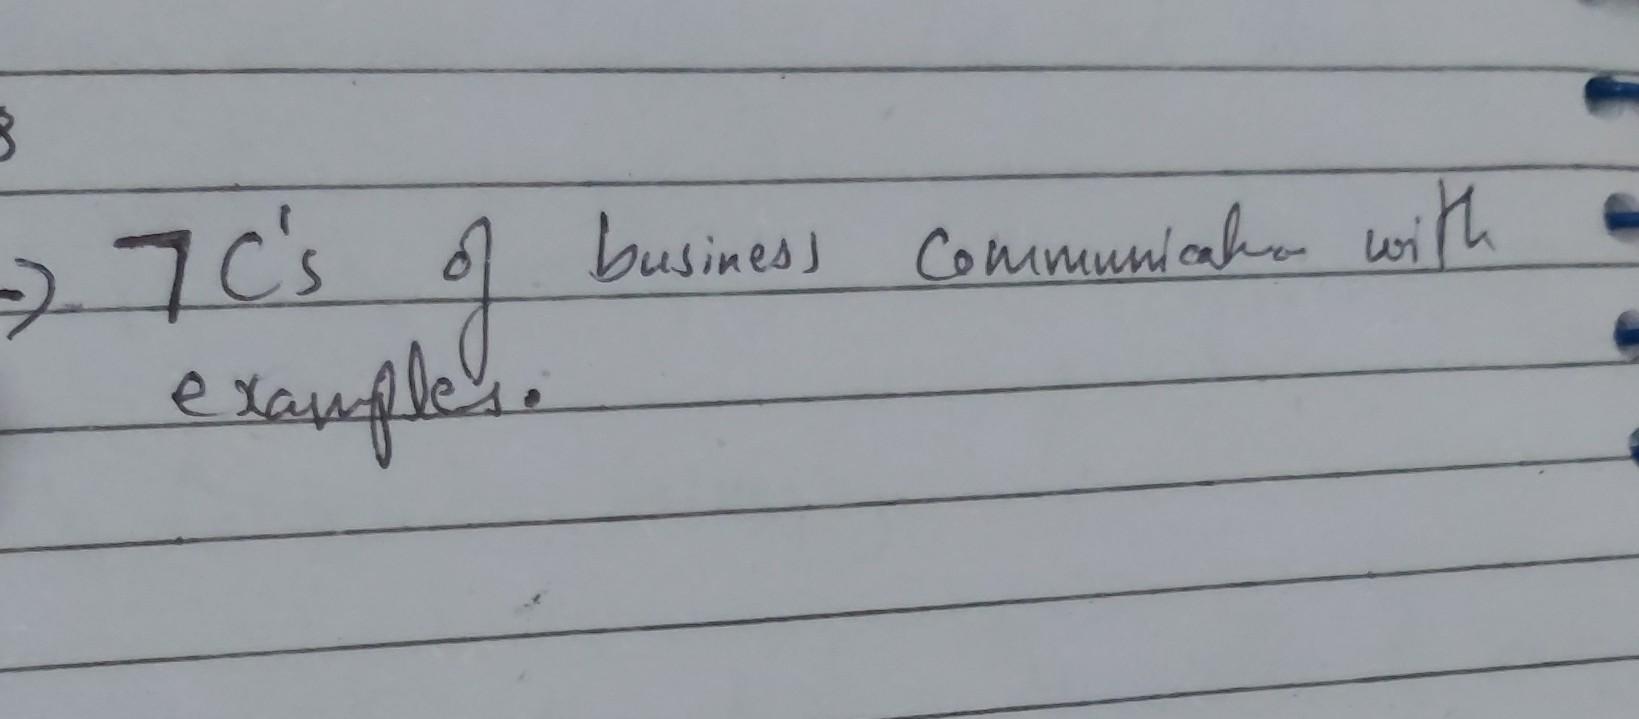 3
→ 7 C's of business communication with
examples.